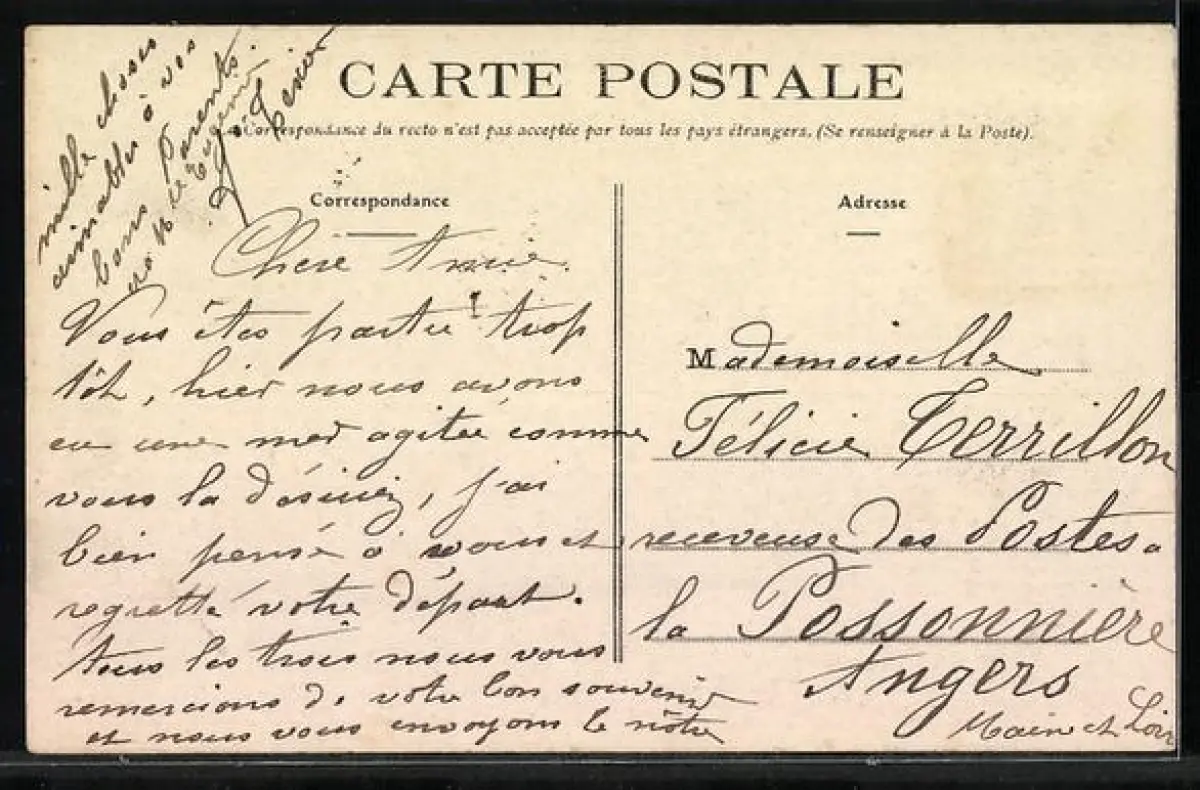 CARTE POSTALE
La Correspondance du recto n'est pas acceptée par tous les pays étrangers. (Se renseigner à la Poste).
Correspondance
Adresse
Chère Amie.
Vous êtes partie trop
tôt, hier nous avons
eu une mer agitée comme
vous la désiriez, j'ai
bien pensé à vous et
regretté votre départ.
tous les trois nous vous
remercions de votre bon souvenir
et nous vous envoyons le nôtre
mille choses
aimables à vos
bons Parents.
Eugénie
Mademoiselle
Félicie Terrillon
receveuse des Postes a
la Possonnière
Angers
Maine et Loire